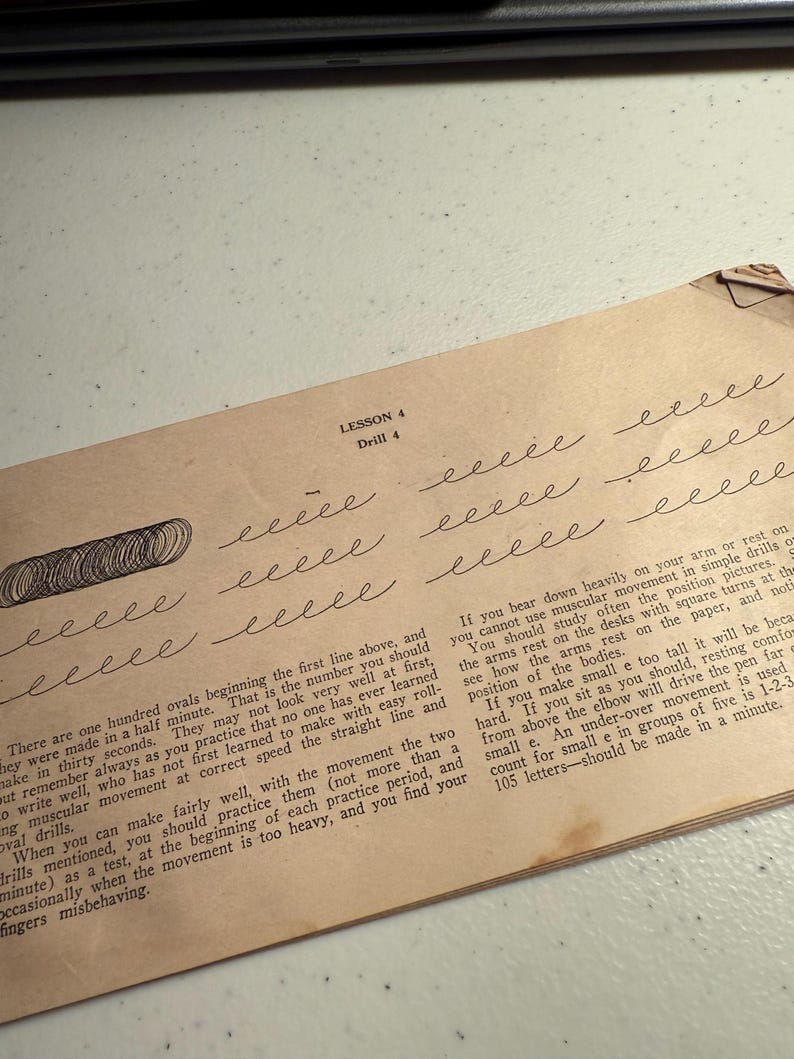 LESSON 4
Drill 4
eeeee eeeee eeeee
eeeee eeeee eeeee eeeee
eeeee eeeee eeeee eeeee
There are one hundred ovals beginning the first line above, and
hey were made in a half minute. That is the number you should
make in thirty seconds. They may not look very well at first,
but remember always as you practice that no one has ever learned
to write well, who has not first learned to make with easy roll-
ing muscular movement at correct speed the straight line and
oval drills.
When you can make fairly well, with the movement the two
drills mentioned, you should practice them (not more than a
minute) as a test, at the beginning of each practice period, and
occasionally when the movement is too heavy, and you find your
fingers misbehaving.
If you bear down heavily on your arm or rest on
you cannot use muscular movement in simple drills o
You should study often the position pictures. S
the arms rest on the desks with square turns at the
see how the arms rest on the paper, and noti
position of the bodies.
If you make small e too tall it will be beca
hard. If you sit as you should, resting comfor
from above the elbow will drive the pen far e
small e. An under-over movement is used
count for small e in groups of five is 1-2-3
105 letters—should be made in a minute.